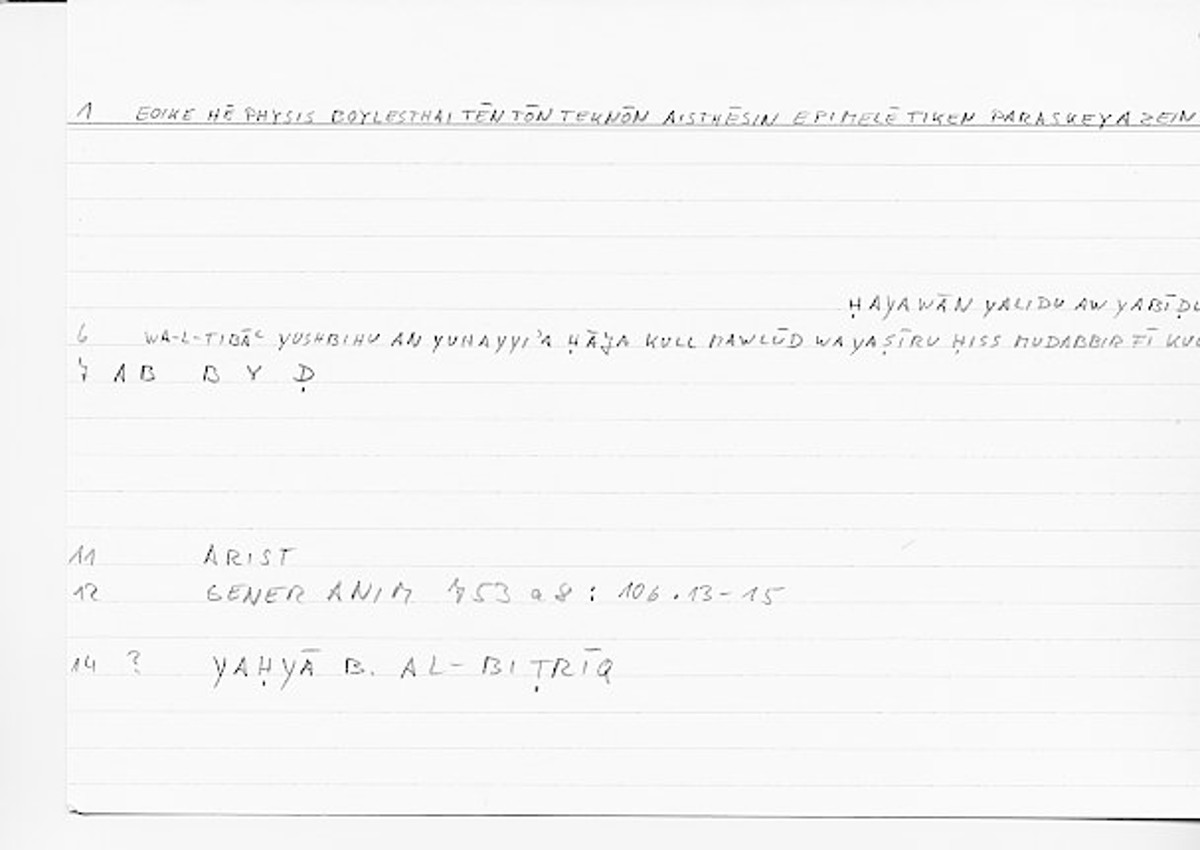 1 EOIKE HĒ PHYSIS BOYLESTHAI TĒN TŌN TEKNŌN AISTHĒSIN EPIMELĒTIKEN PARASKEYAZEIN
ḤAYAWĀN YALIDU AW YABĪḌU
6 WA-L-TIBĀʿ YUSHBIHU AN YUHAYYIʾA ḤĀǦA KULL MAWLŪD WA YAṢĪRU ḤISS MUDABBIR FĪ
7 AB B Y Ḍ
11 ARIST
12 GENER ANIM 753 a 8 : 106.13-15
14 ? YAḤYĀ B. AL-BIṬRĪQ